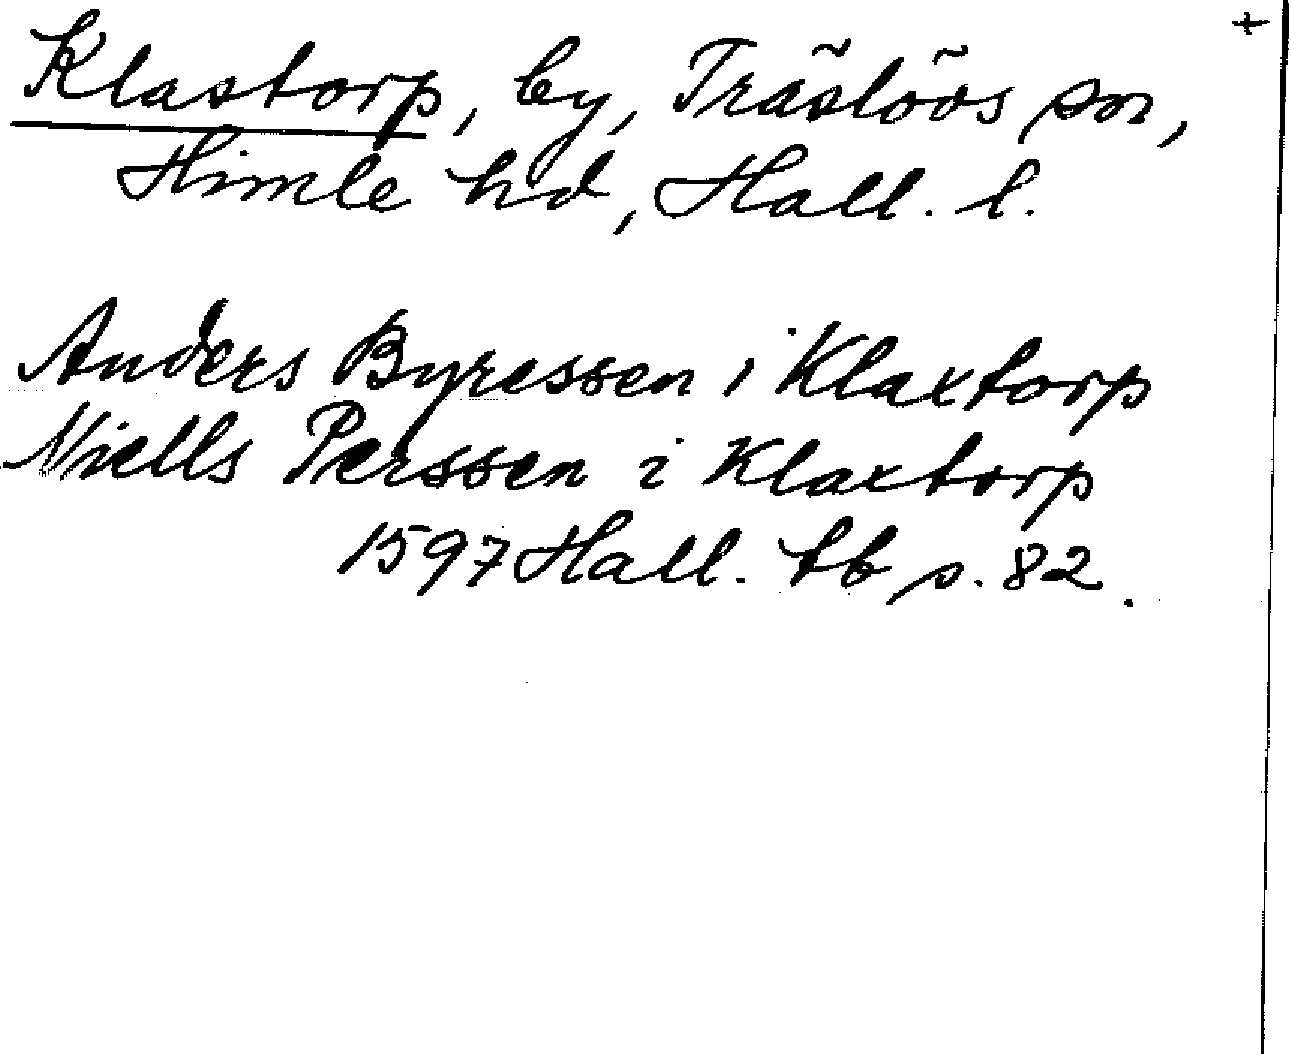 +
Klastorp, by, Träslövs sn,
Himle hd, Hall. l.
Anders Byressen i Klaxtorp
Niells Perssen i Klaxtorp
1597 Hall. tb s. 82.